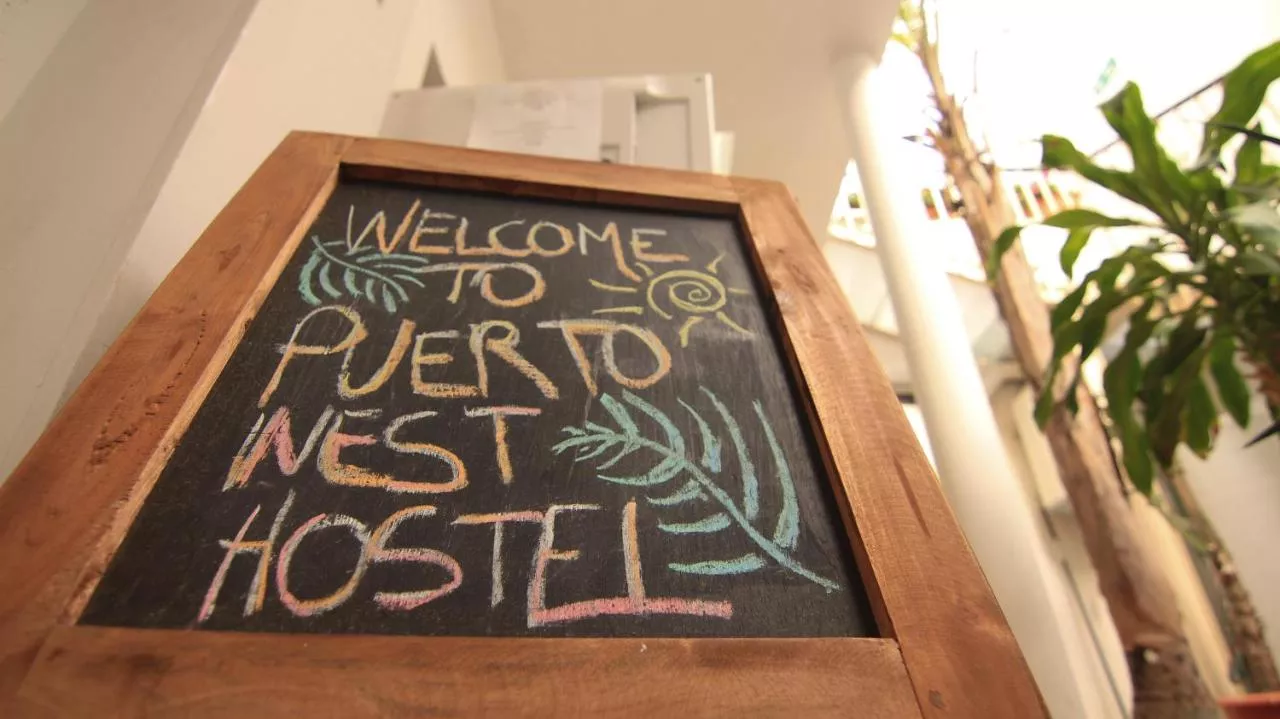 WELCOME
TO
PUERTO
NEST
HOSTEL